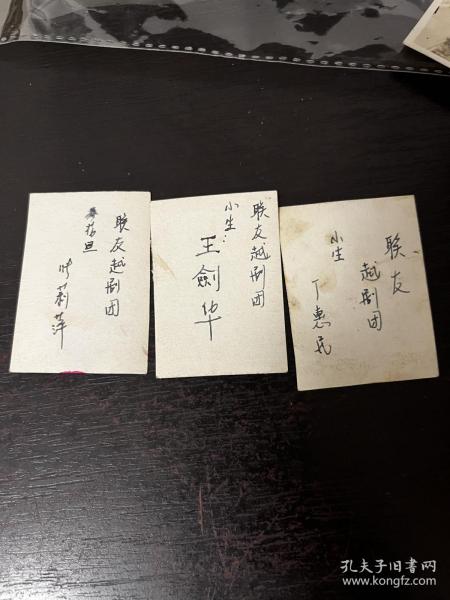 联友越剧团
花旦
莉萍
联友越剧团
小生:
王劍华
联友
越剧团
小生
丁惠民
孔夫子旧书网
www.kongfz.com